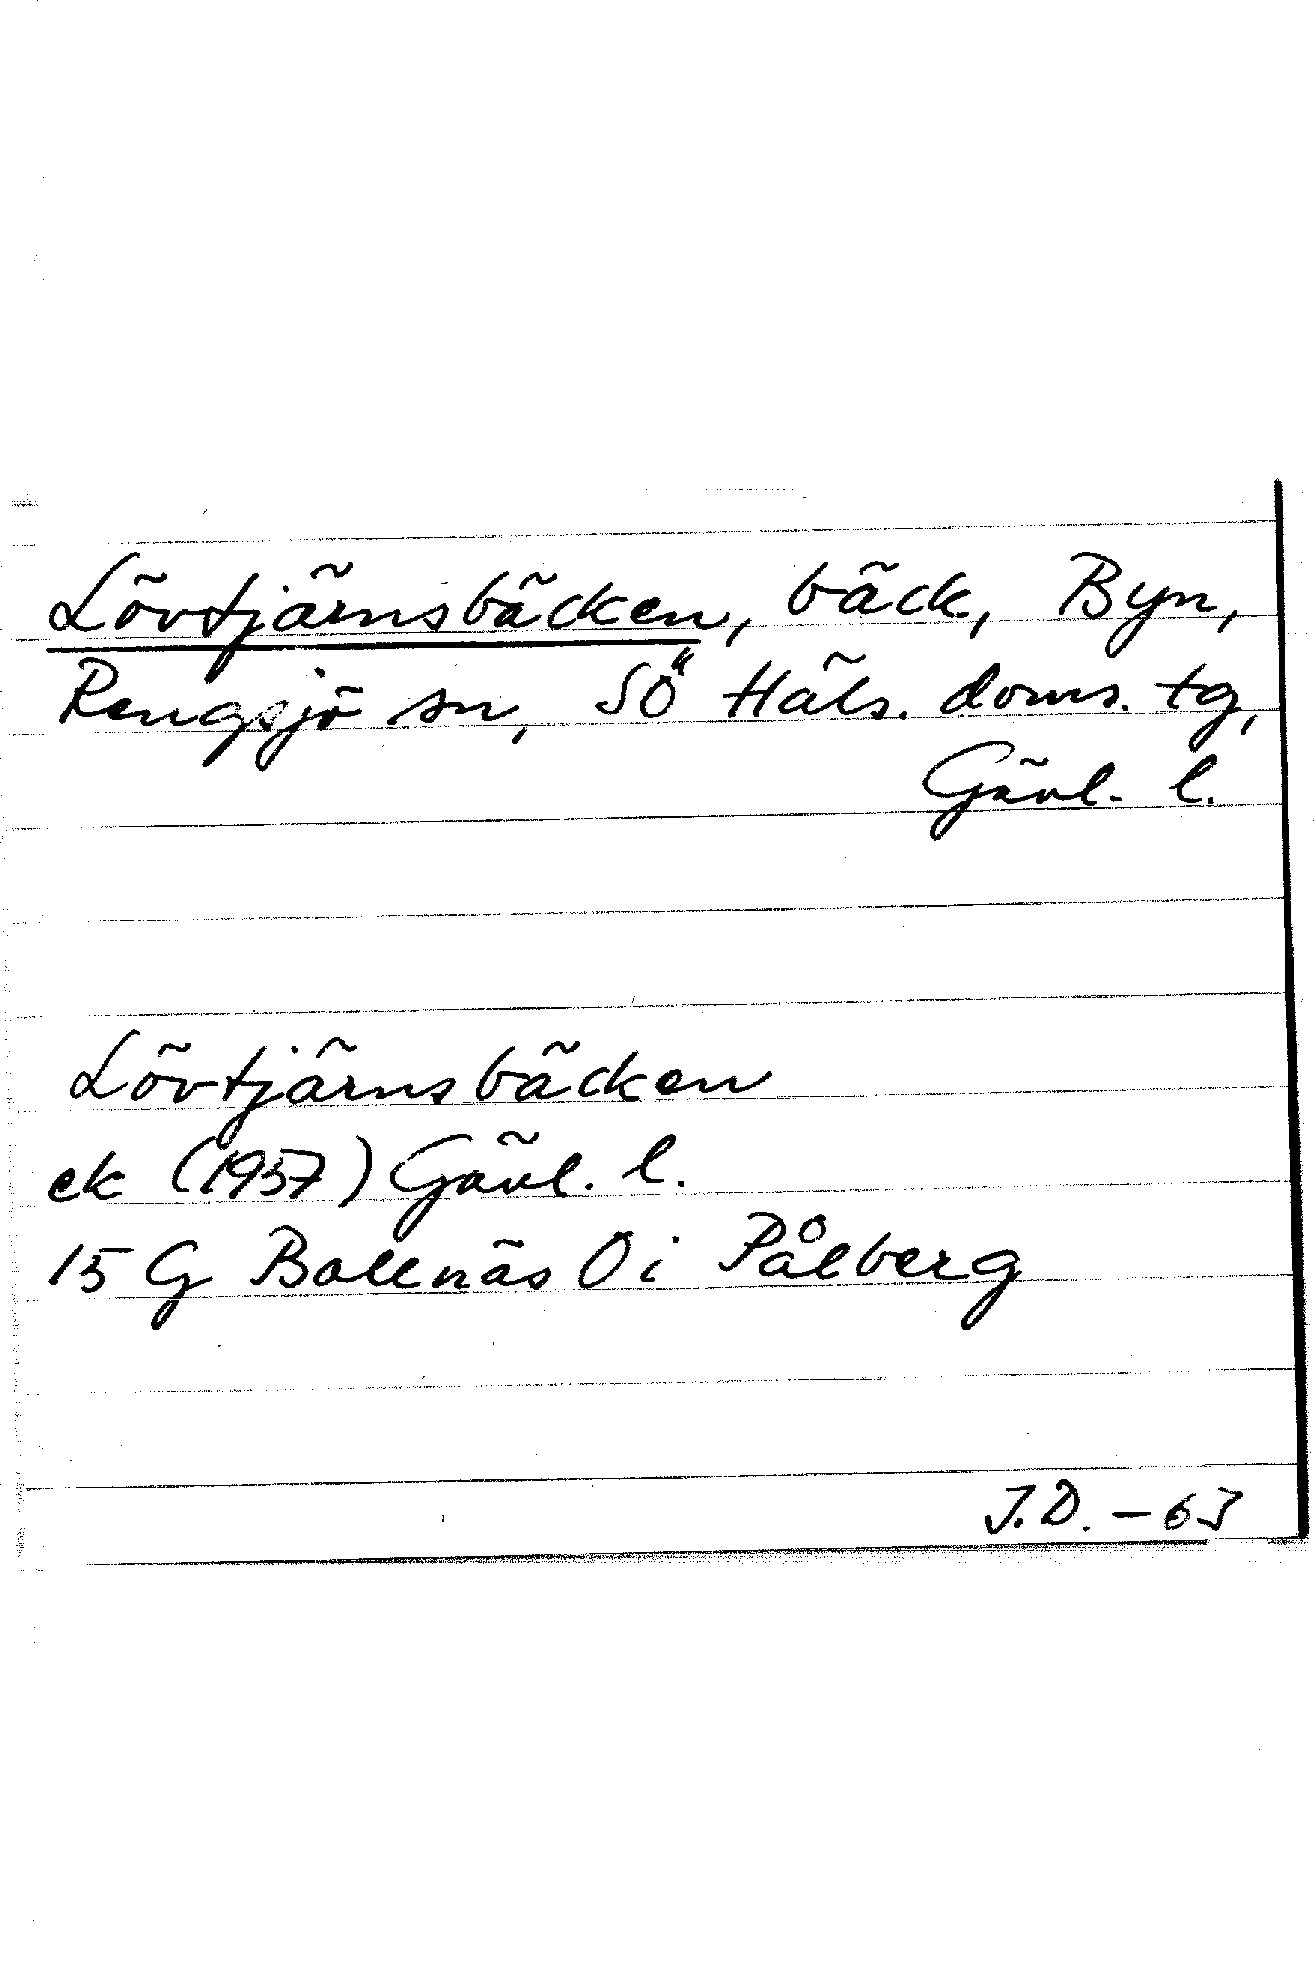 Lövtjärnsbäcken, bäck, Byn,
Rengsjö sn, SÖ Häls. doms. tg,
Gävl. l.
Lövtjärnsbäcken
ek (1957) Gävl. l.
15 G Bollnäs 0 i Pålberg
J.D. - 63